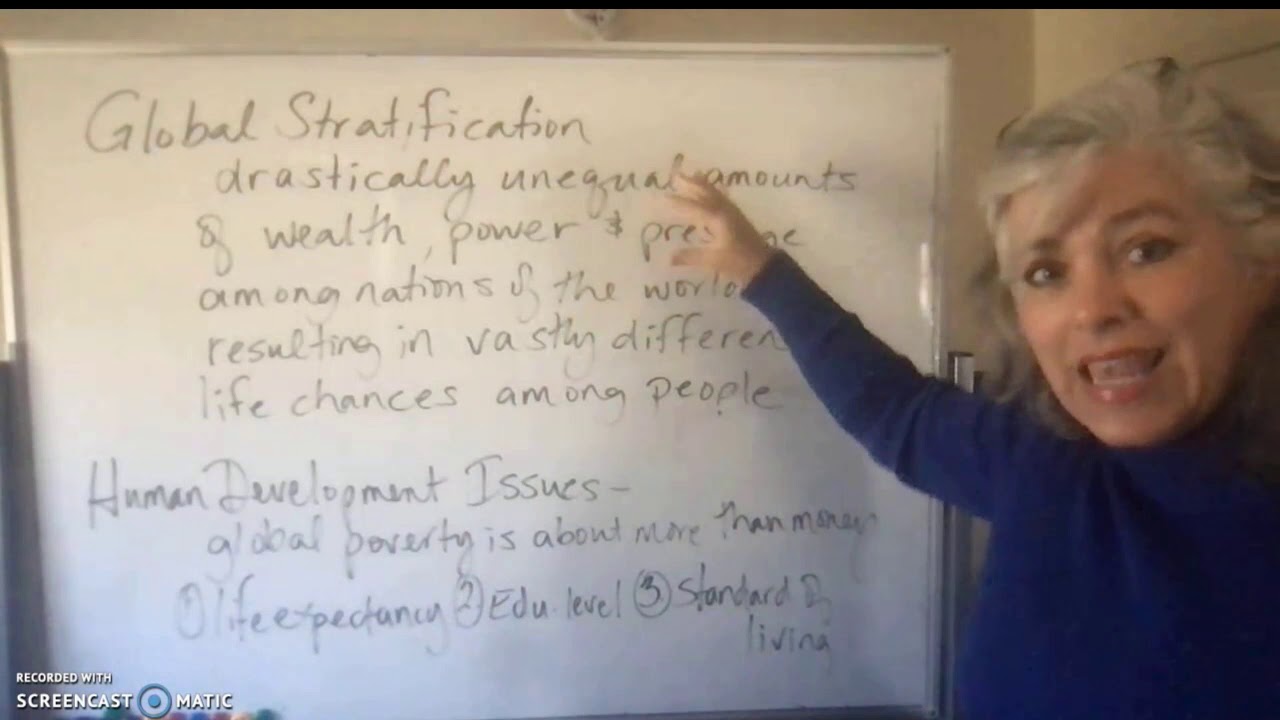 Global Stratification
drastically unequal amounts
of wealth, power & pres ge
among nations of the world
resulting in vastly differen
life chances among people
Human Development Issues –
global poverty is about more than money
① life expectancy ② Edu. level ③ Standard of
living
RECORDED WITH
SCREENCAST MATIC